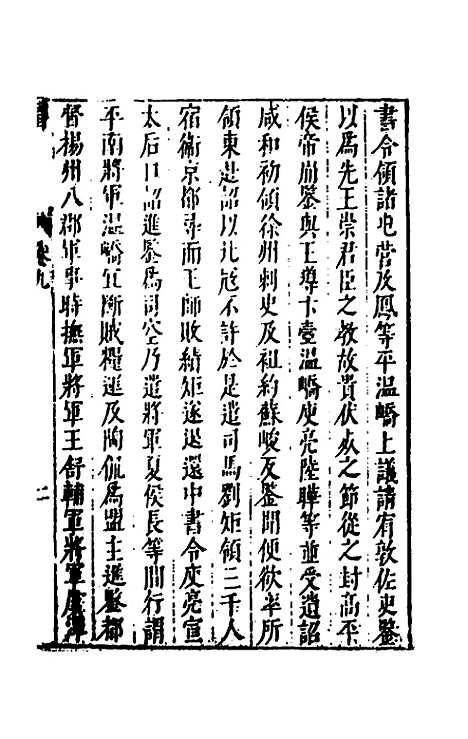 書令領諸屯營及鳳等平溫嶠上議請宥敦佐吏鑒
以爲先王崇君臣之教故貴伏死之節從之封高平
侯帝崩鑒與王導卞壼溫嶠庾亮陸曄等並受遺詔
咸和初領徐州刺史及祖約蘇峻反鑒聞便欲率所
領東赴詔以北寇不許於是遣司馬劉矩領三千人
宿衛京都尋而王師敗績矩遂退還中書令庾亮宣
太后口詔進鑒爲司空乃遣將軍夏侯長等間行謂
平南將軍溫嶠宜斷賊糧運及陶侃爲盟主進鑒都
督揚州八郡軍事時撫軍將軍王舒輔軍將軍虞潭
卷九
二